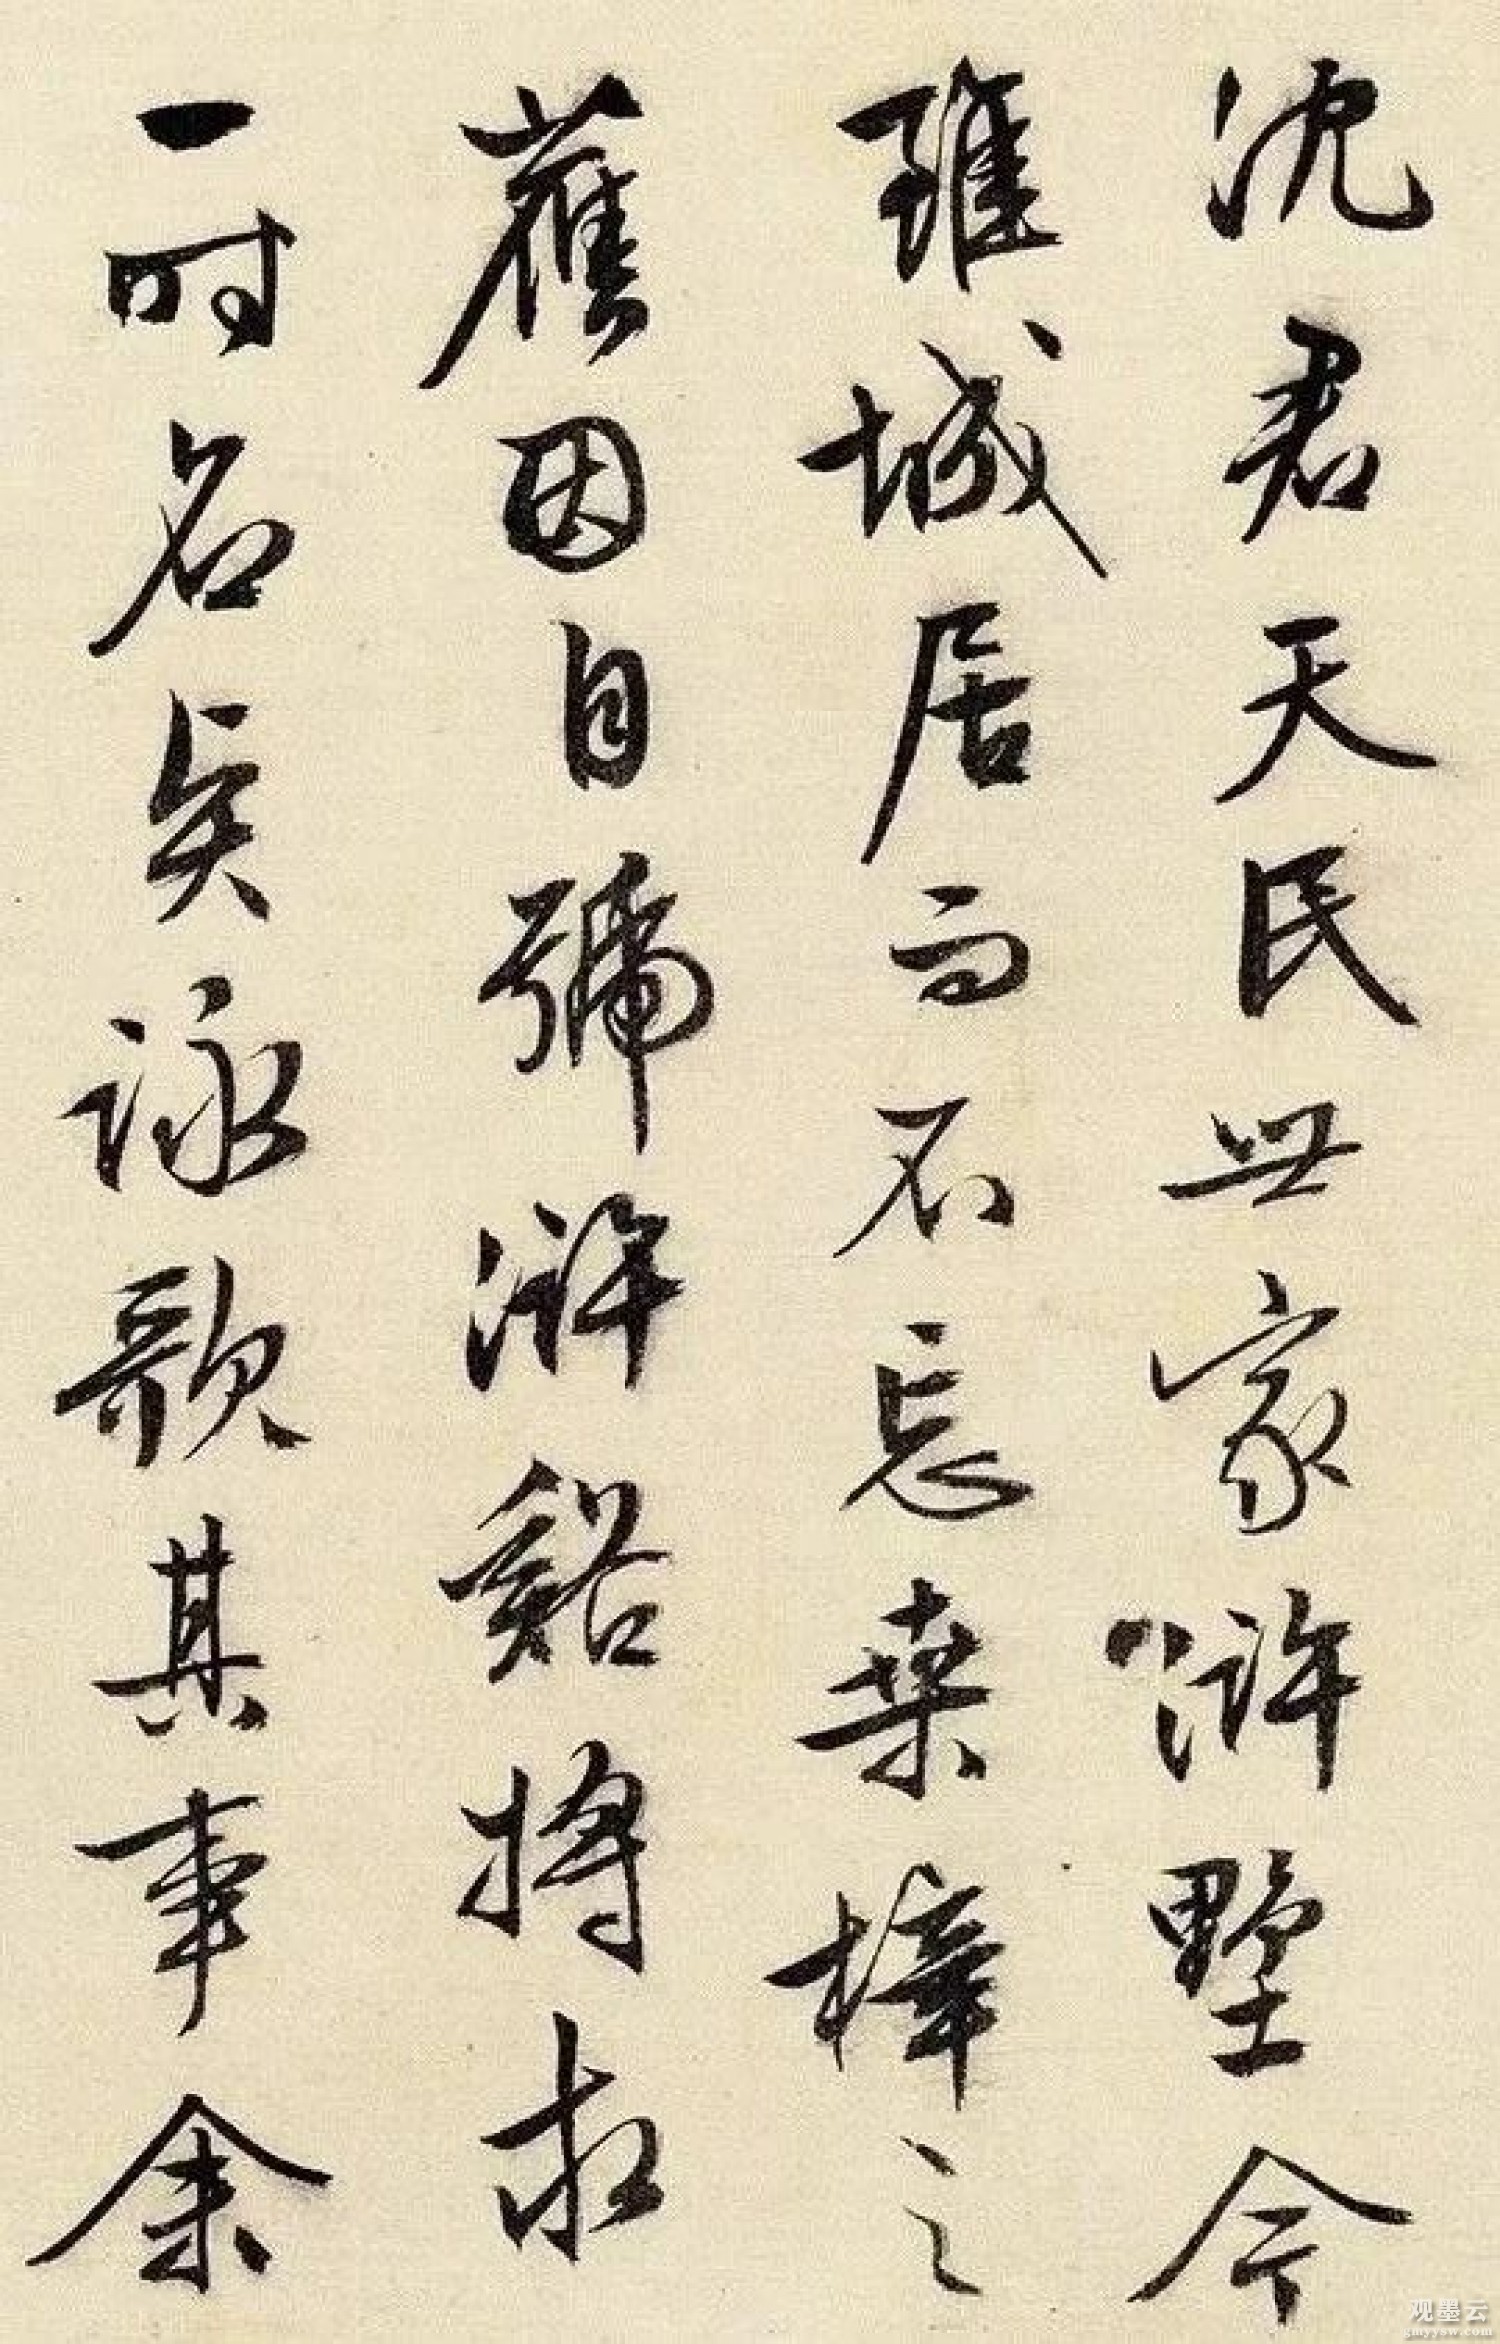 沈君天民世家滸墅今
雖城居而不忘桑梓之
舊因自號滸谿將求
一時名勝詠歌其事余
观墨云
gmyysw.com